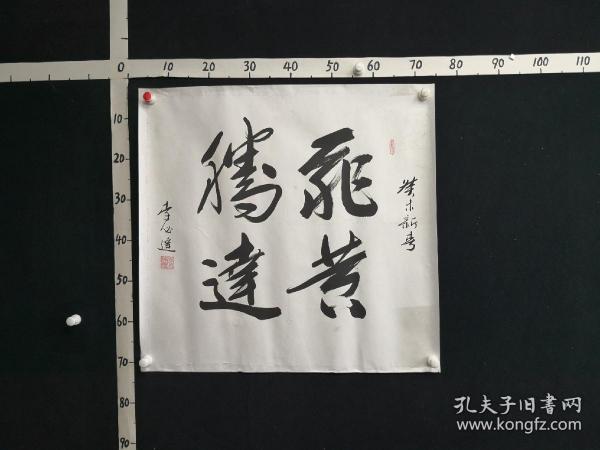 0 10 20 30 40 50 60 70 80 90 100 110
10
20
30
40
50
60
70
80
90
癸未新春
飛黄
騰達
孔夫子旧書网
www.kongfz.com